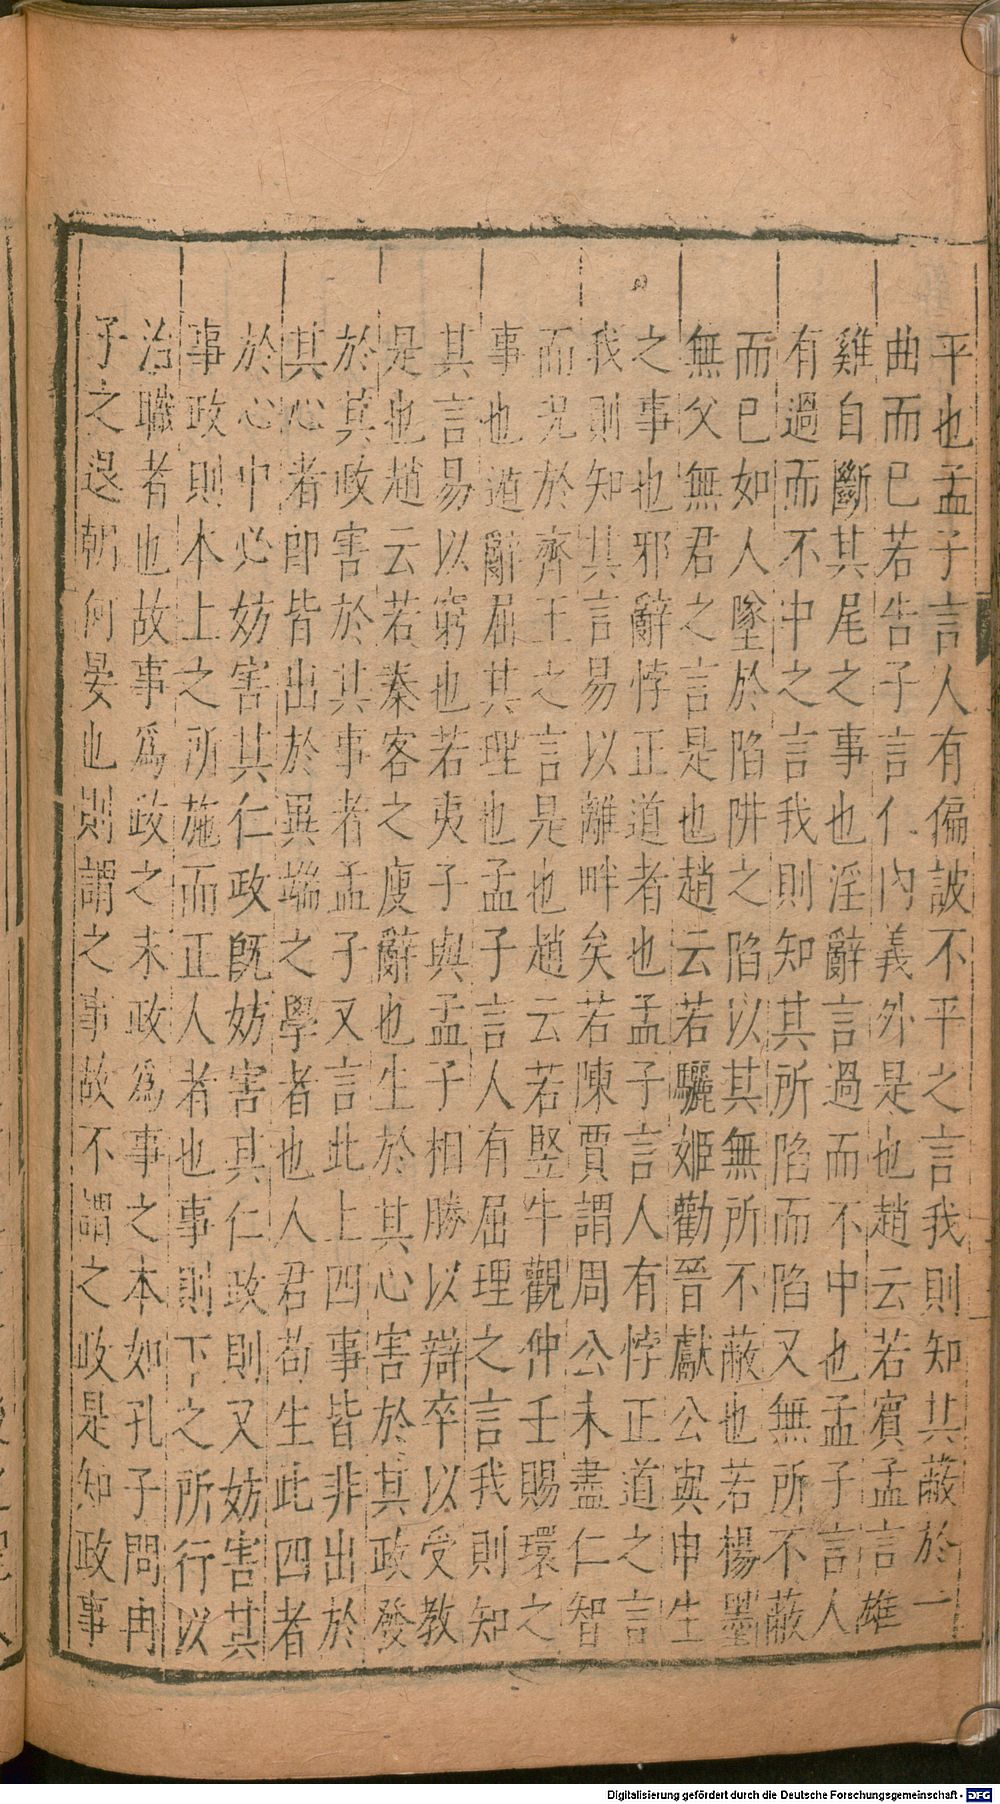 平也孟子言人有偏詖不平之言我則知其蔽於一
曲而已若告子言仁內義外是也趙云若賓孟言雄
雞自斷其尾之事也淫辭言過而不中也孟子言人
有過而不中之言我則知其所陷而陷又無所不蔽
而已如人墜於陷阱之陷以其無所不蔽也若楊墨
無父無君之言是也趙云若驪姬勸晉獻公與申生
之事也邪辭悖正道者也孟子言人有悖正道之言
我則知其言易以離畔矣若陳賈謂周公未盡仁智
而況於齊王之言是也趙云若豎牛觀仲壬賜環之
事也遁辭屈其理也孟子言人有屈理之言我則知
其言易以窮也若夷子與孟子相勝以辯卒以受教
是也趙云若秦客之廋辭也生於其心害於其政發
於其政害於其事者孟子又言此上四事皆非出於
其心者即皆出於異端之學者也人君苟生此四者
於心中必妨害其仁政旣妨害其仁政則又妨害其
事政則本上之所施而正人者也事則下之所行以
治職者也故事爲政之末政爲事之本如孔子問冉
子之退朝何晏也則謂之事故不謂之政是知政事
Digitalisierung gefördert durch die Deutsche Forschungsgemeinschaft - DFG